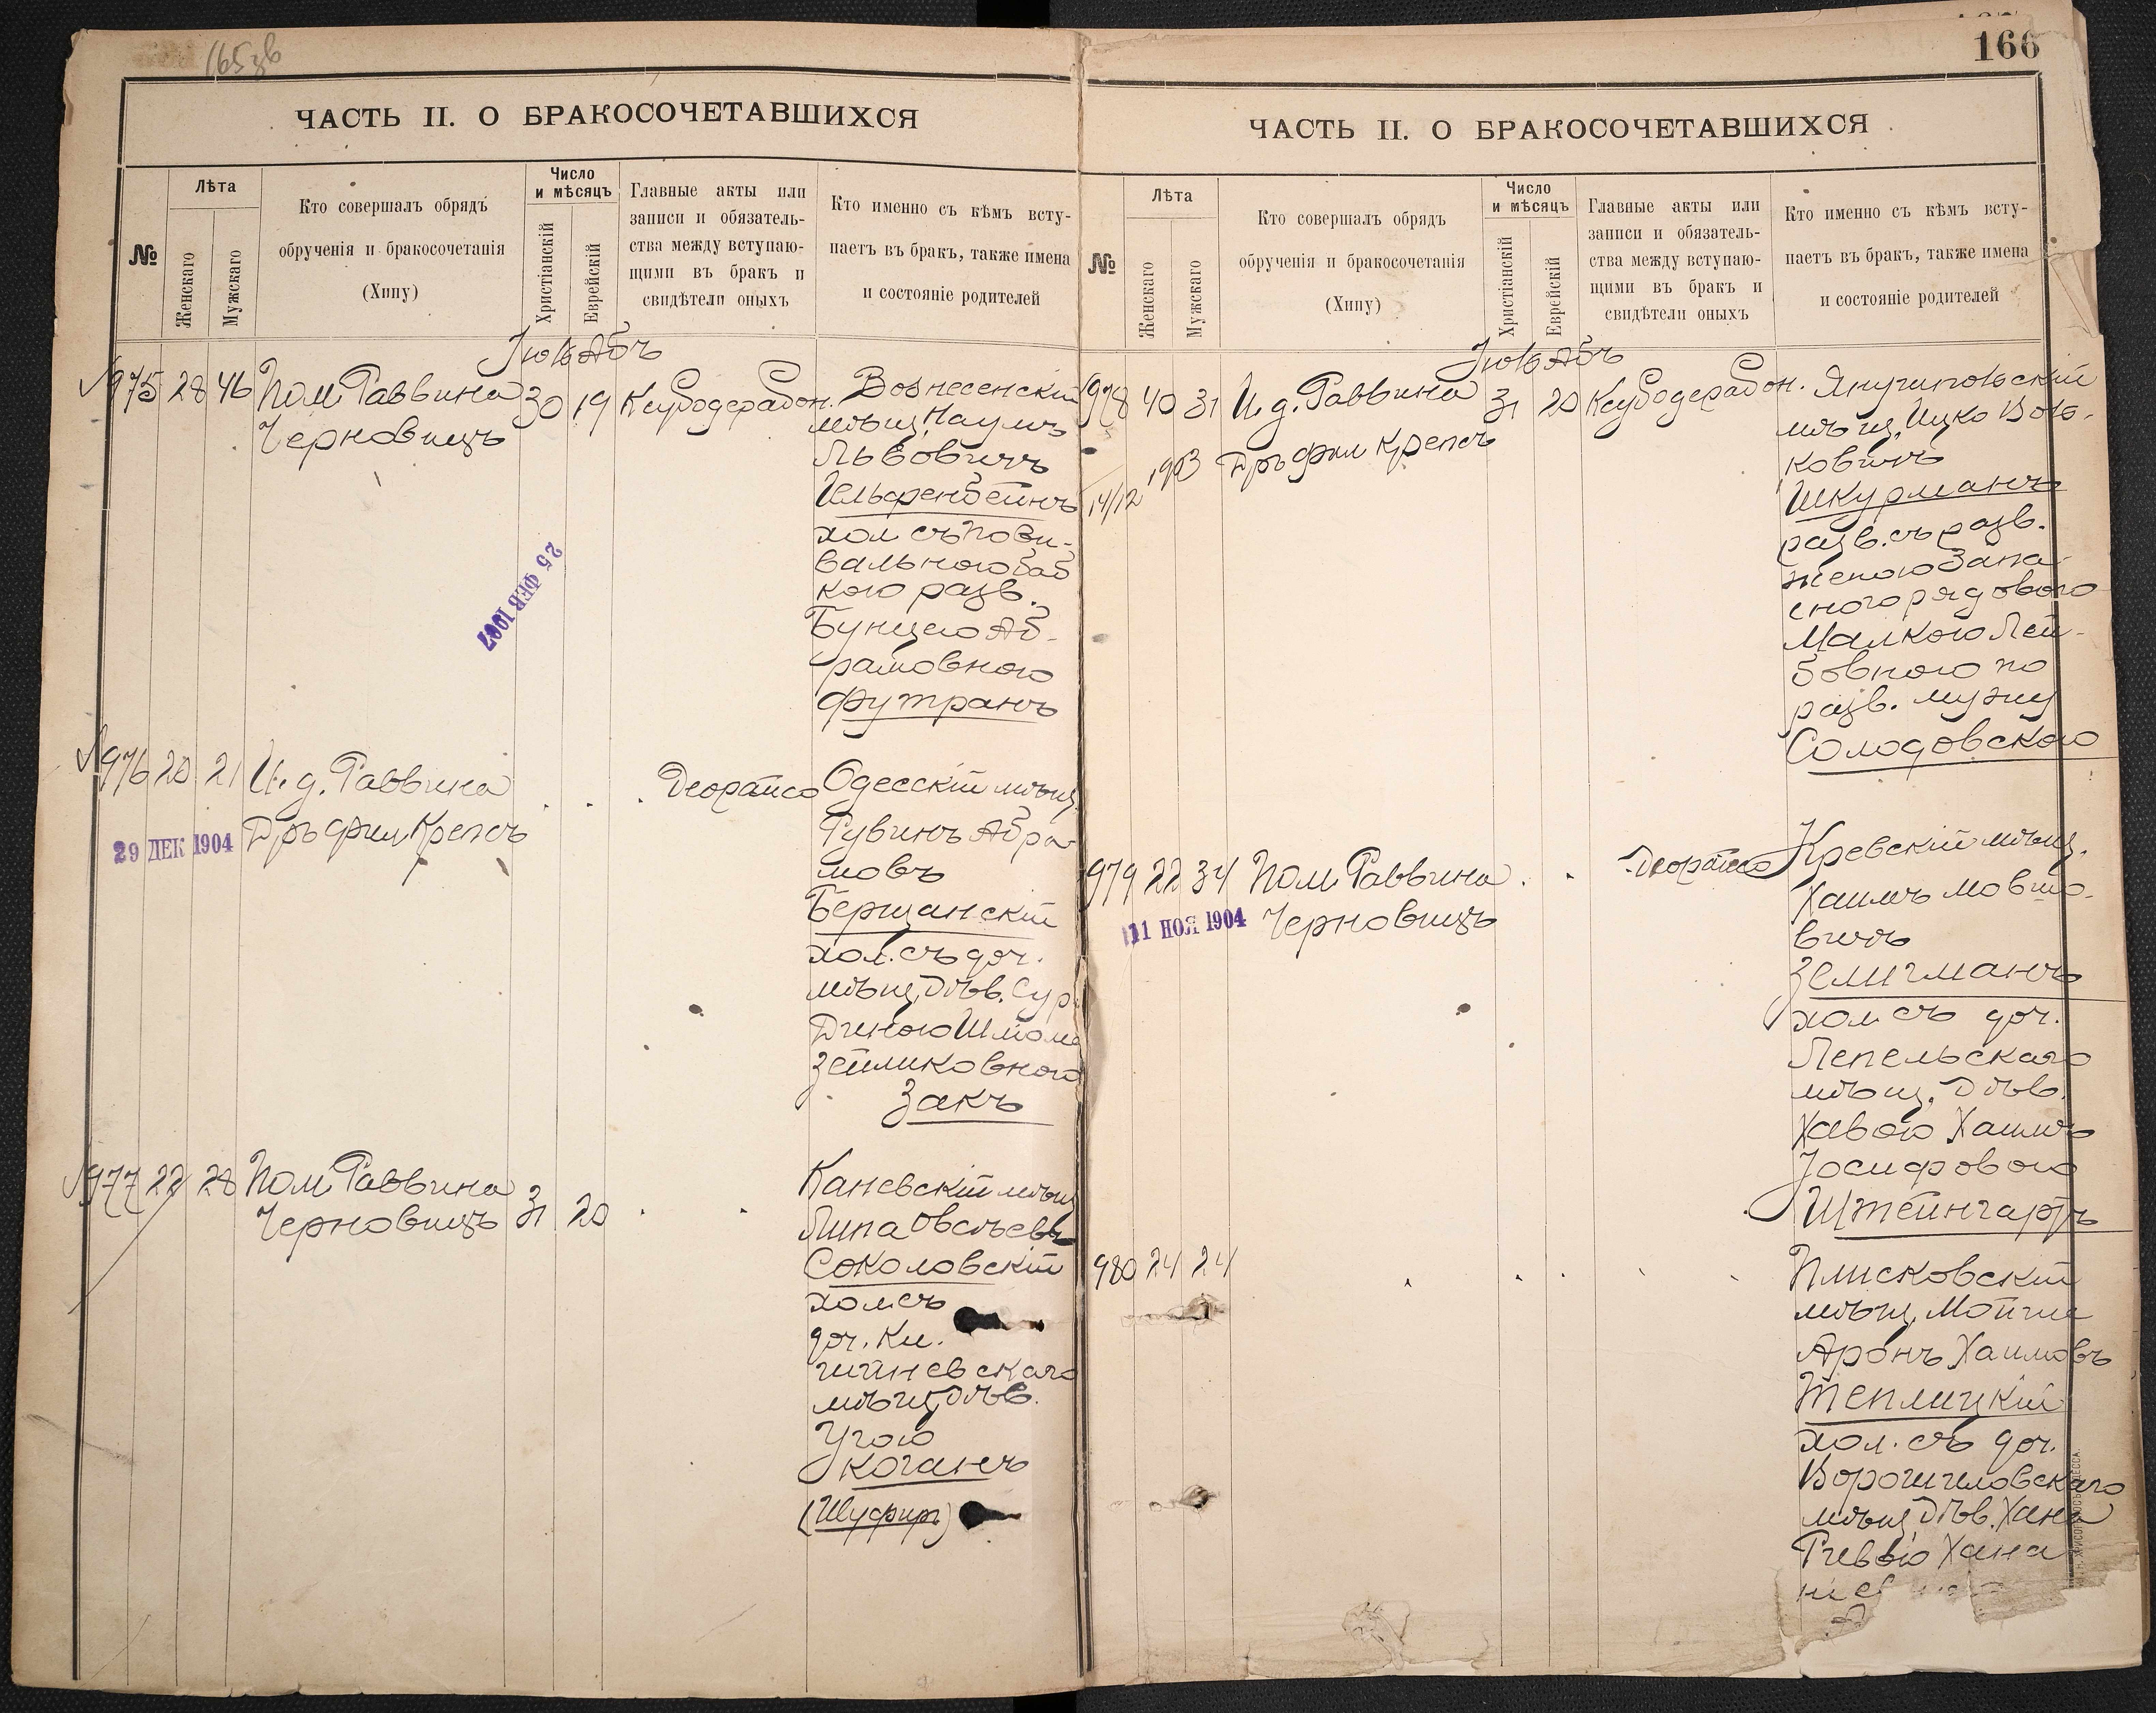 165 зв
ЧАСТЬ II. О БРАКОСОЧЕТАВШИХСЯ
№
Лѣта
Женскаго
Мужскаго
Кто совершалъ обрядъ
обрученія и бракосочетанія
(Хипу)
Число
и мѣсяцъ
Христіанскій
Еврейскій
Главные акты или
записи и обязатель-
ства между вступаю-
щими въ бракъ и
свидѣтели оныхъ
Кто именно съ кѣмъ всту-
паетъ въ бракъ, также имена
и состояніе родителей
Іюль Абъ
975 28 46 Пом. Раввина 30 19 Вознесенскій
Черновицъ
мѣщ. Наумъ
Львовичъ
Гельфенбейнъ
хол. съ пови-
вальною баб
кою разв.
Бунцею Аб-
рамовною
Футранъ
25 ФЕВ 1907
976 20 21 И. д. Раввина . . . Деорайсо Одесскій мѣщ.
Дръ фил. Крепсъ
29 ДЕК 1904
Рувинъ Абра
мовъ
Бершанскій
хол. съ доч.
мѣщ. Дѣв. Сур
Диною Шлома
Зейликовною
Закъ
977 22 28 Пом. Раввина
Черновицъ 31 20 . .
Каневскій мѣщ
Липа Овсѣевъ
Соколовскій
хол. съ
доч. Ки.
шиневскаго
мѣщ. Дѣв.
Коганъ
(Шуфиръ)
166
ЧАСТЬ II. О БРАКОСОЧЕТАВШИХСЯ
№
Лѣта
Женскаго
Мужскаго
Кто совершалъ обрядъ
обрученія и бракосочетанія
(Хипу)
Число
и мѣсяцъ
Христіанскій
Еврейскій
Главные акты или
записи и обязатель-
ства между вступаю-
щими въ бракъ и
свидѣтели оныхъ
Кто именно съ кѣмъ всту-
паетъ въ бракъ, также имена
и состояніе родителей
Іюль Абъ
978 40 31 И. д. Раввина 31 20
Дръ фил Крепсъ
14/12
мѣщ. Ицко Воль-
ковичъ
Шкурманъ
разв. съ разв.
женою Запа
снаго рядового
Малкою Лей-
бовною по
разв. мужу
Солодовского
979 22 34 Пом. Раввина . . Деорайсо Кревскій мѣщ.
11 НОЯ 1904 Черновицъ
Хаимъ Мовшо-
вичъ
Зелигманъ
хол. съ доч.
Лепельскаго
мѣщ. Дѣв.
Хавою Хаимъ
Іосифовою
Штейнгартъ
980 24 24 . . . . .
Плисковскій
мѣщ. Мойше
Аронъ Хаимовъ
Теплицкій
хол. съ доч.
Ворошиловскаго
мѣщ. Дѣв. Хана
Ривою Хана